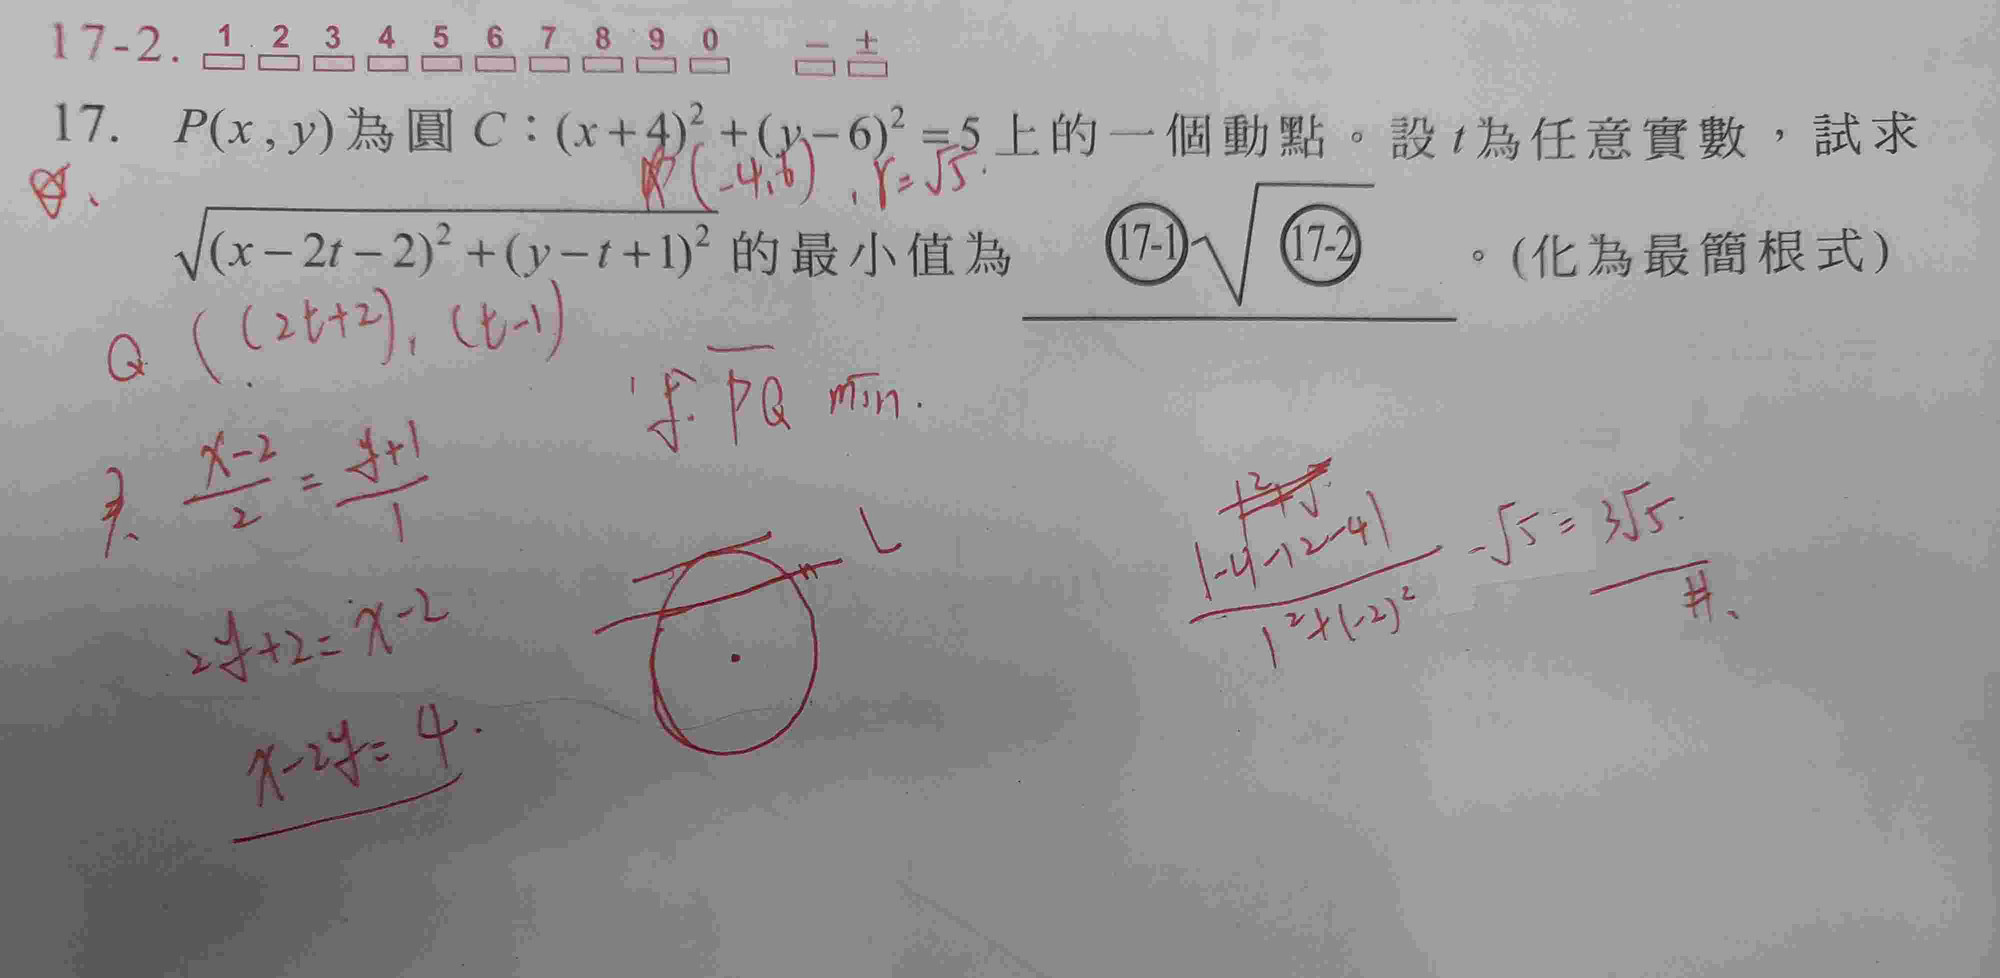 17-2. 1 2 3 4 5 6 7 8 9 0 − ±
17. P(x , y)為圓 C：(x+4)²+(y−6)²=5上的一個動點。設 t 為任意實數，試求
(-4,6) , r=√5.
√((x−2t−2)²+(y−t+1)²) 的最小值為 (17-1)√(17-2) 。(化為最簡根式)
Q ((2t+2), (t-1)
PQ min.
(x-2)/2 = (y+1)/1
L
|-4-12-4| / 1²+(-2)² -√5 = 3√5.
#
2y+2=x-2
x-2y=4.